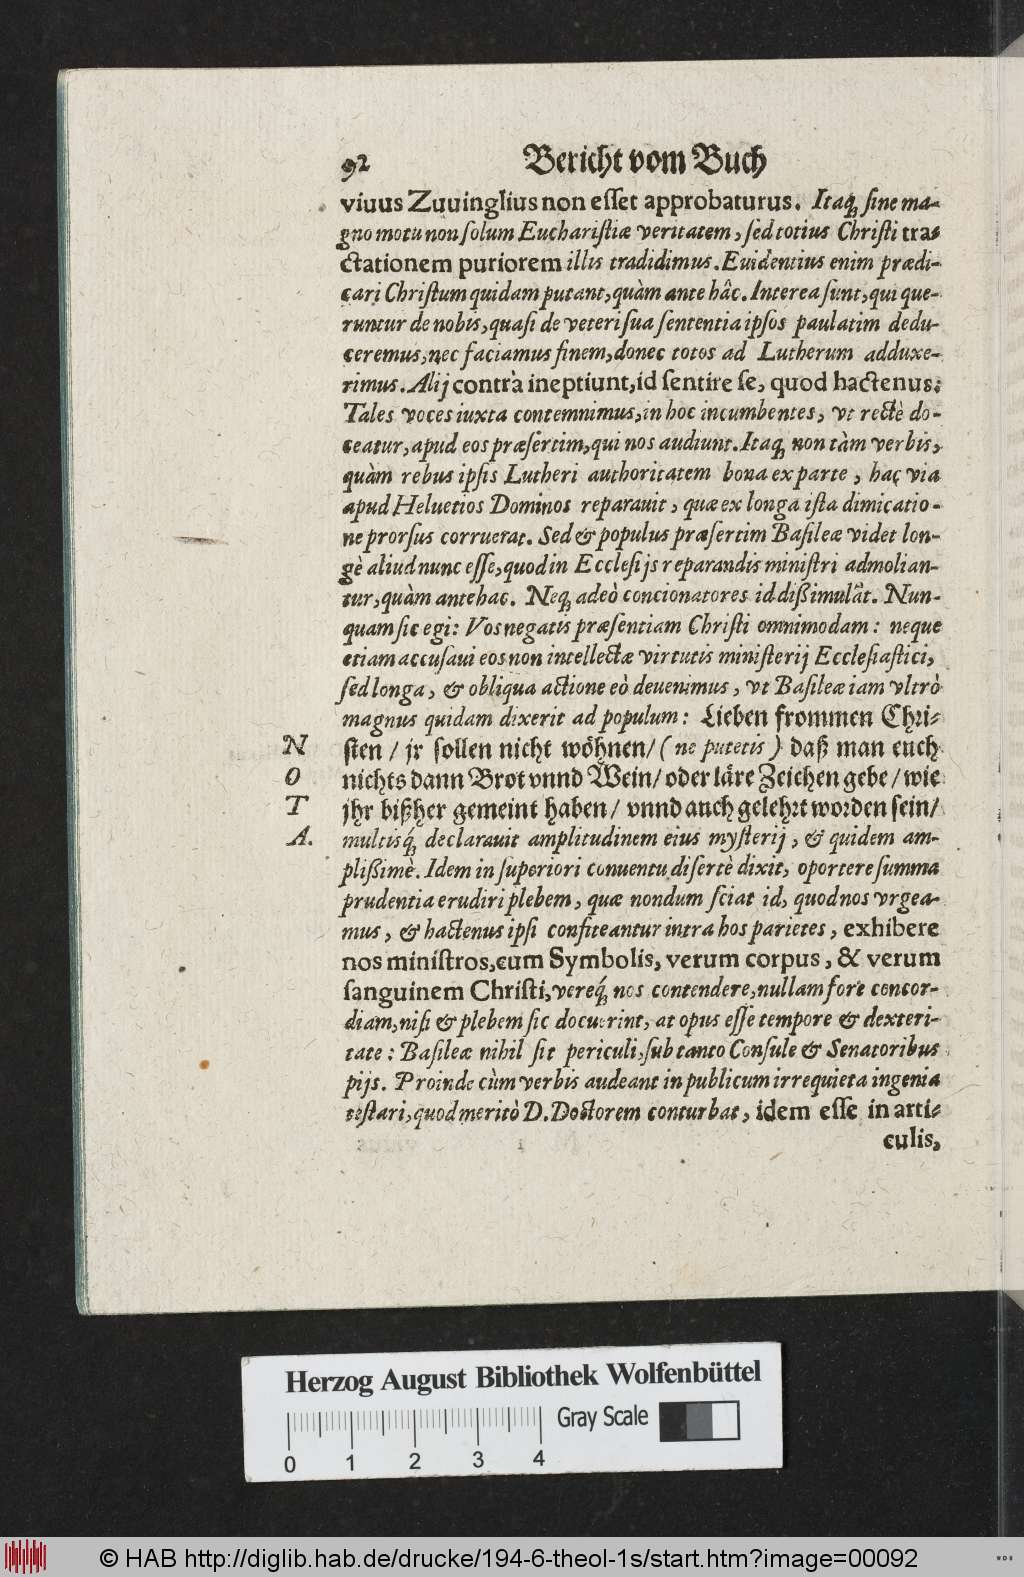 92 Bericht vom Buch
viuus Zuuinglius non esset approbaturus. Itaq; sine ma-
gno motu non solum Eucharistiæ veritatem, sed totius Christi tra-
ctationem puriorem illis tradidimus. Euidentius enim prædi-
cari Christum quidam putant, quàm ante hâc. Interea sunt, qui que-
runtur de nobis, quasi de veteri sua sententia ipsos paulatim dedu-
ceremus, nec faciamus finem, donec totos ad Lutherum adduxe-
rimus. Alij contrà ineptiunt, id sentire se, quod hactenus:
Tales voces iuxta contemnimus, in hoc incumbentes, vt rectè do-
ceatur, apud eos præsertim, qui nos audiunt. Itaq; non tàm verbis,
quàm rebus ipsis Lutheri authoritatem bona ex parte, hac via
apud Heluetios Dominos reparauit, quæ ex longa ista dimicatio-
ne prorsus corruerat. Sed & populus præsertim Basileæ videt lon-
gè aliud nunc esse, quod in Ecclesijs reparandis ministri admolian-
tur, quàm antehac. Neq; adeò concionatores id dißimulât. Nun-
quam sic egi: Vos negatis præsentiam Christi omnimodam: neque
etiam accusaui eos non intellectæ virtutis ministerij Ecclesiastici,
sed longa, & obliqua actione eò deuenimus, vt Basileæ iam vltrò
magnus quidam dixerit ad populum: Lieben frommen Chri-
N sten / jr sollen nicht wöhnen / ( ne putetis ) daß man euch
O nichts dann Brot vnnd Wein / oder läre Zeichen gebe / wie
T jhr bißher gemeint haben / vnnd auch gelehrt worden sein /
A. multisq́; declarauit amplitudinem eius mysterij, & quidem am-
plißimè. Idem in superiori conuentu disertè dixit, oportere summa
prudentia erudiri plebem, quæ nondum sciat id, quod nos vrgea-
mus, & hactenus ipsi confiteantur intra hos parietes, exhibere
nos ministros, cum Symbolis, verum corpus, & verum
sanguinem Christi, vereq́; nos contendere, nullam fore concor-
diam, nisi & plebem sic docuerint, at opus esse tempore & dexteri-
tate: Basileæ nihil sit periculi, sub tanto Consule & Senatoribus
pijs. Proinde cùm verbis audeant in publicum irrequieta ingenia
testari, quod meritò D. Doctorem conturbat, idem esse in arti-
culis,
Herzog August Bibliothek Wolfenbüttel
Gray Scale
0 1 2 3 4
© HAB http://diglib.hab.de/drucke/194-6-theol-1s/start.htm?image=00092